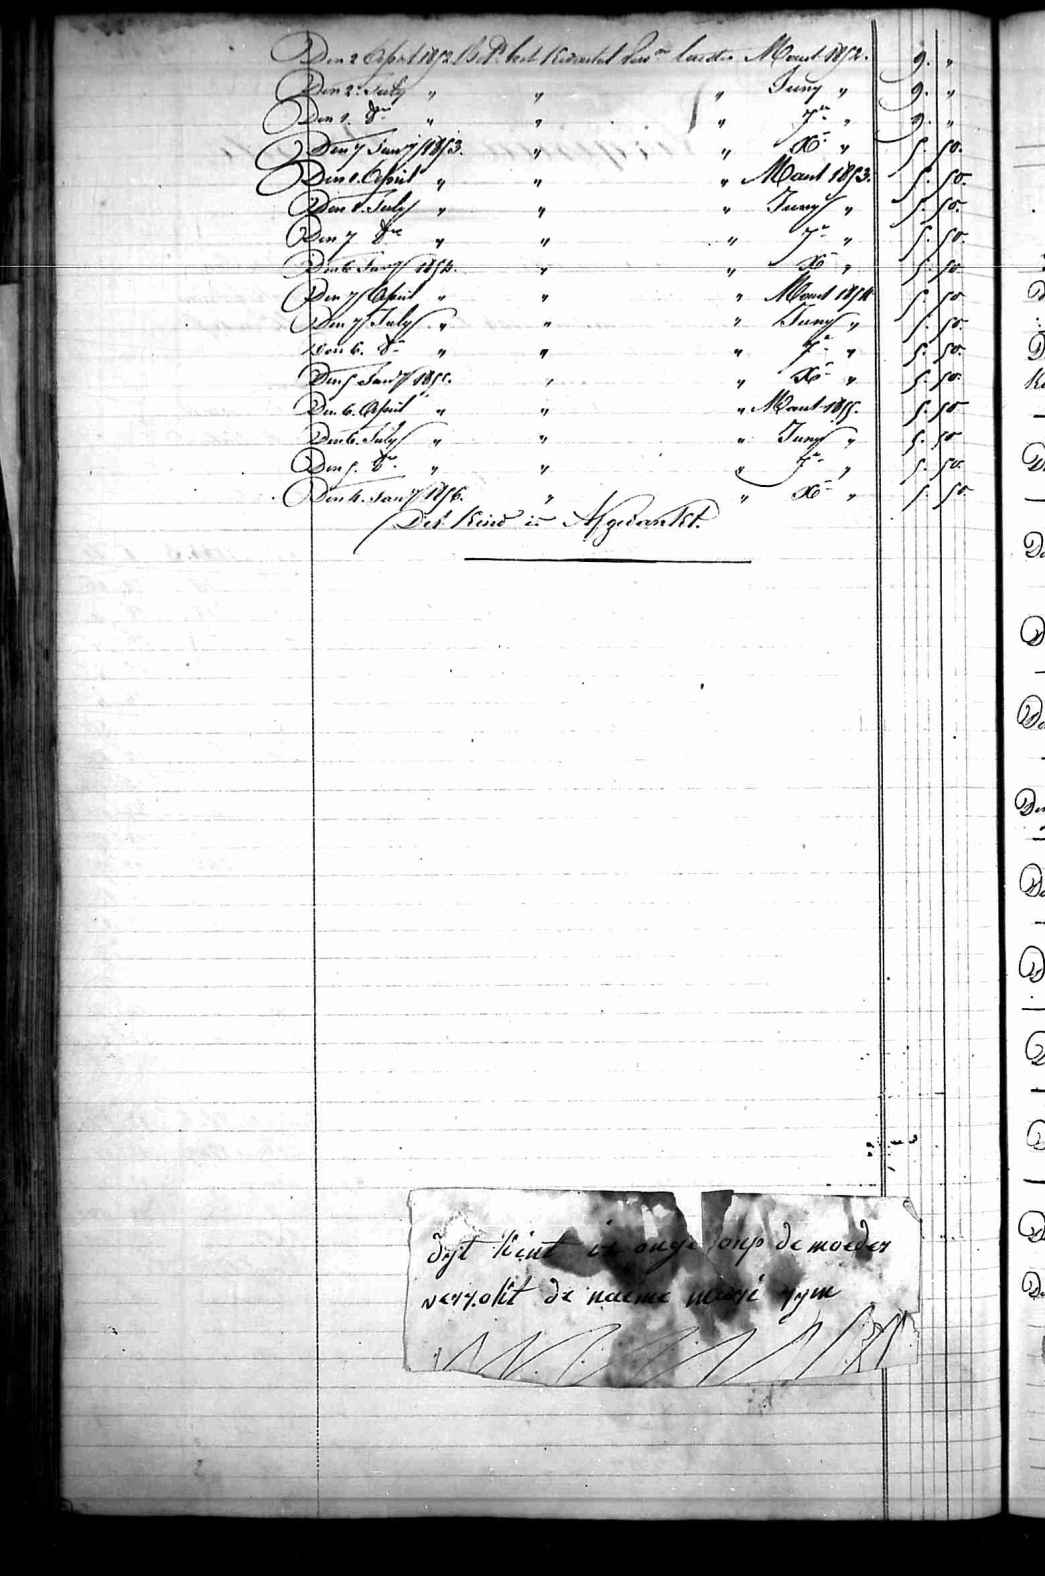 Den 2 April 1852 Bet.d het Kwartal Lersn laesten Maart 1852. 9. „
Den 2. July „ „ „ Juny „ 9. „
Den 1. 8re „ „ „ 7re „ 9. „
Den 7 Jany 1853. „ „ Xre „ 5. 50.
Den 1. April „ „ „ Maart 1853. 5. 50.
Den 1. July „ „ „ Juny „ 5. 50.
Den 7 8re „ „ „ 7re „ 5. 50.
Den 6 Jany 1854. „ „ Xre „ 5. 50
Den 7 April „ „ „ Maart 1854 5. 50
Den 7 July „ „ „ Juny „ 5. 50.
Den 6. 8re „ „ „ 7re „ 5. 50.
Den 5 Jany 1855. „ „ Xre „ 5. 50.
Den 6. April „ „ „ Maart 1855. 5. 50
Den 6. July „ „ „ Juny „ 5. 50
Den 5. 8re „ „ „ 7re „ 5. 50.
Den 4. Jany 1856. „ „ Xre „ 5. 50.
Dit Kind is Afgedankt.
dyt kint is onge doop de moeder
verzokt de naeme marri rym